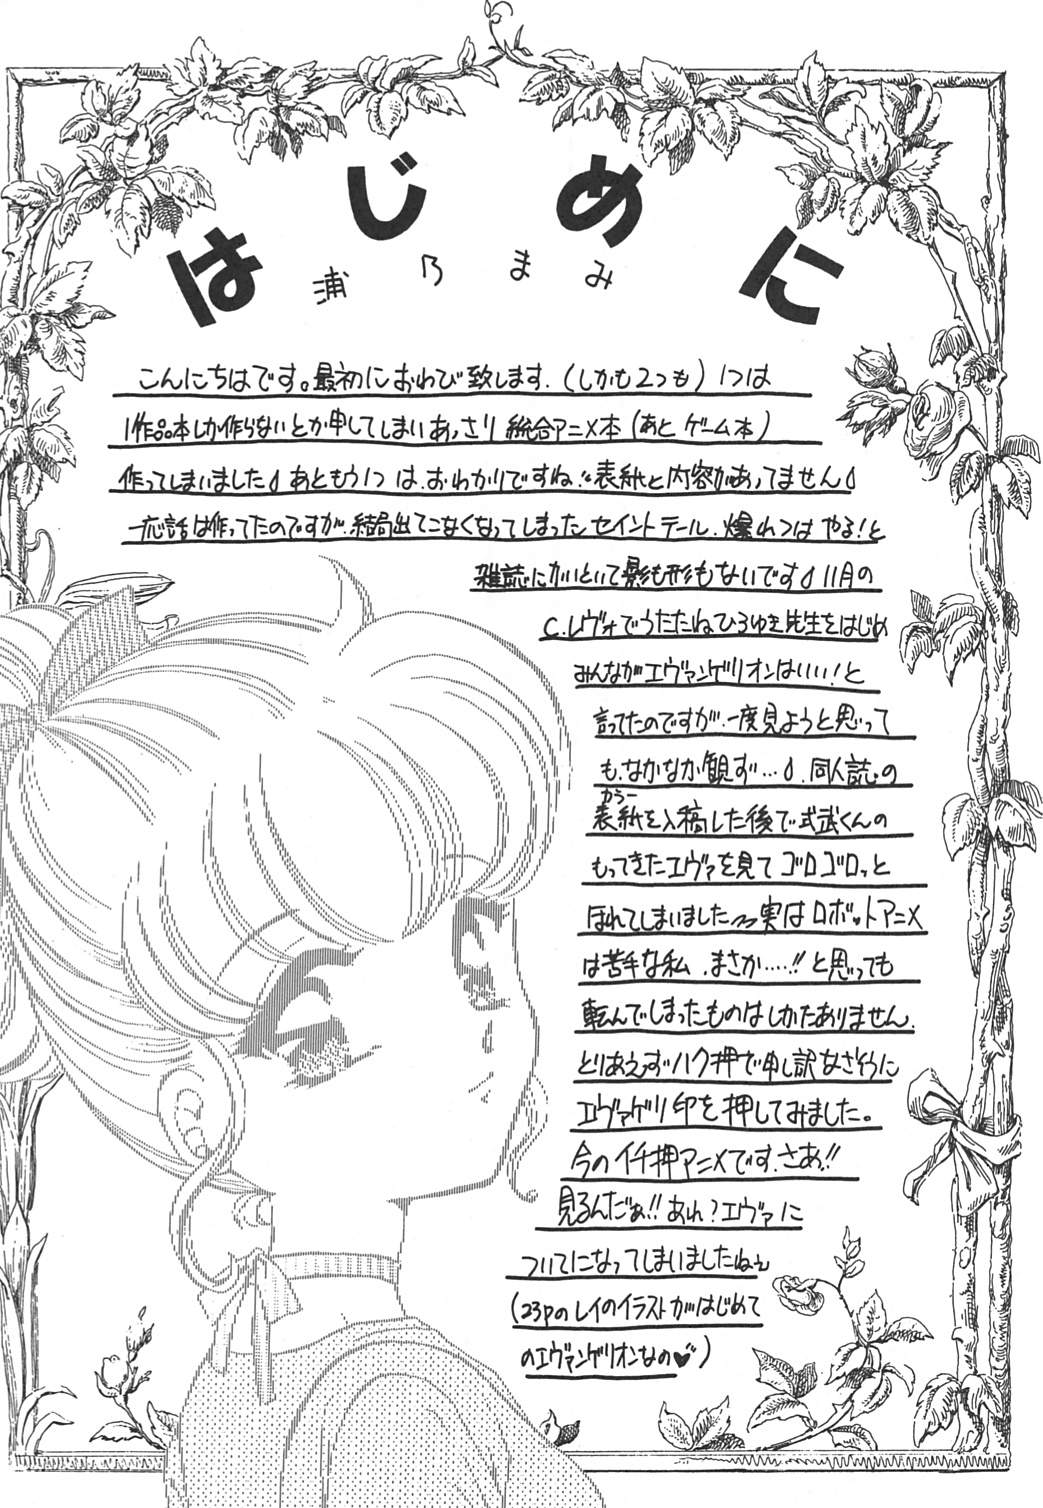 はじめに
浦乃まみ
こんにちはです。最初におわび致します.(しかも2つも) 1つは
1作品本しか作らないとか申してしまいあっさり 総合アニメ本(あと ゲーム本)
作ってしまいました あともう1つ は.おわかりですね.“表紙と内容があってません
一応話は作ってたのですが.結局出てこなくなってしまったセイントテール.爆れつは やる!と
雑誌にかいといて影も形もないです 11月の
C.レヴォでうたたねひろゆき先生をはじめ
みんながエヴァンゲリオンはいい!と
言ってたのですが.一度見ようと思って
も.なかなか観ず… .同人誌の
カラー
表紙を入稿した後で式武くんの
もってきたエヴァを見て ゴロゴロっと
ほれてしまいました〜実はロボットアニメ
は苦手な私 .まさか……!!と思っても
転んでしまったものはしかたありません.
とりあえずハク押で申し訳なさそうに
エヴァゲリ印を押してみました。
今のイチ押アニメです.さあ!!
見るんだぁ!!あれ?エヴァに
ついてになってしまいましたねぇ
(23Pのレイのイラストがはじめて
のエヴァンゲリオンなの♥)